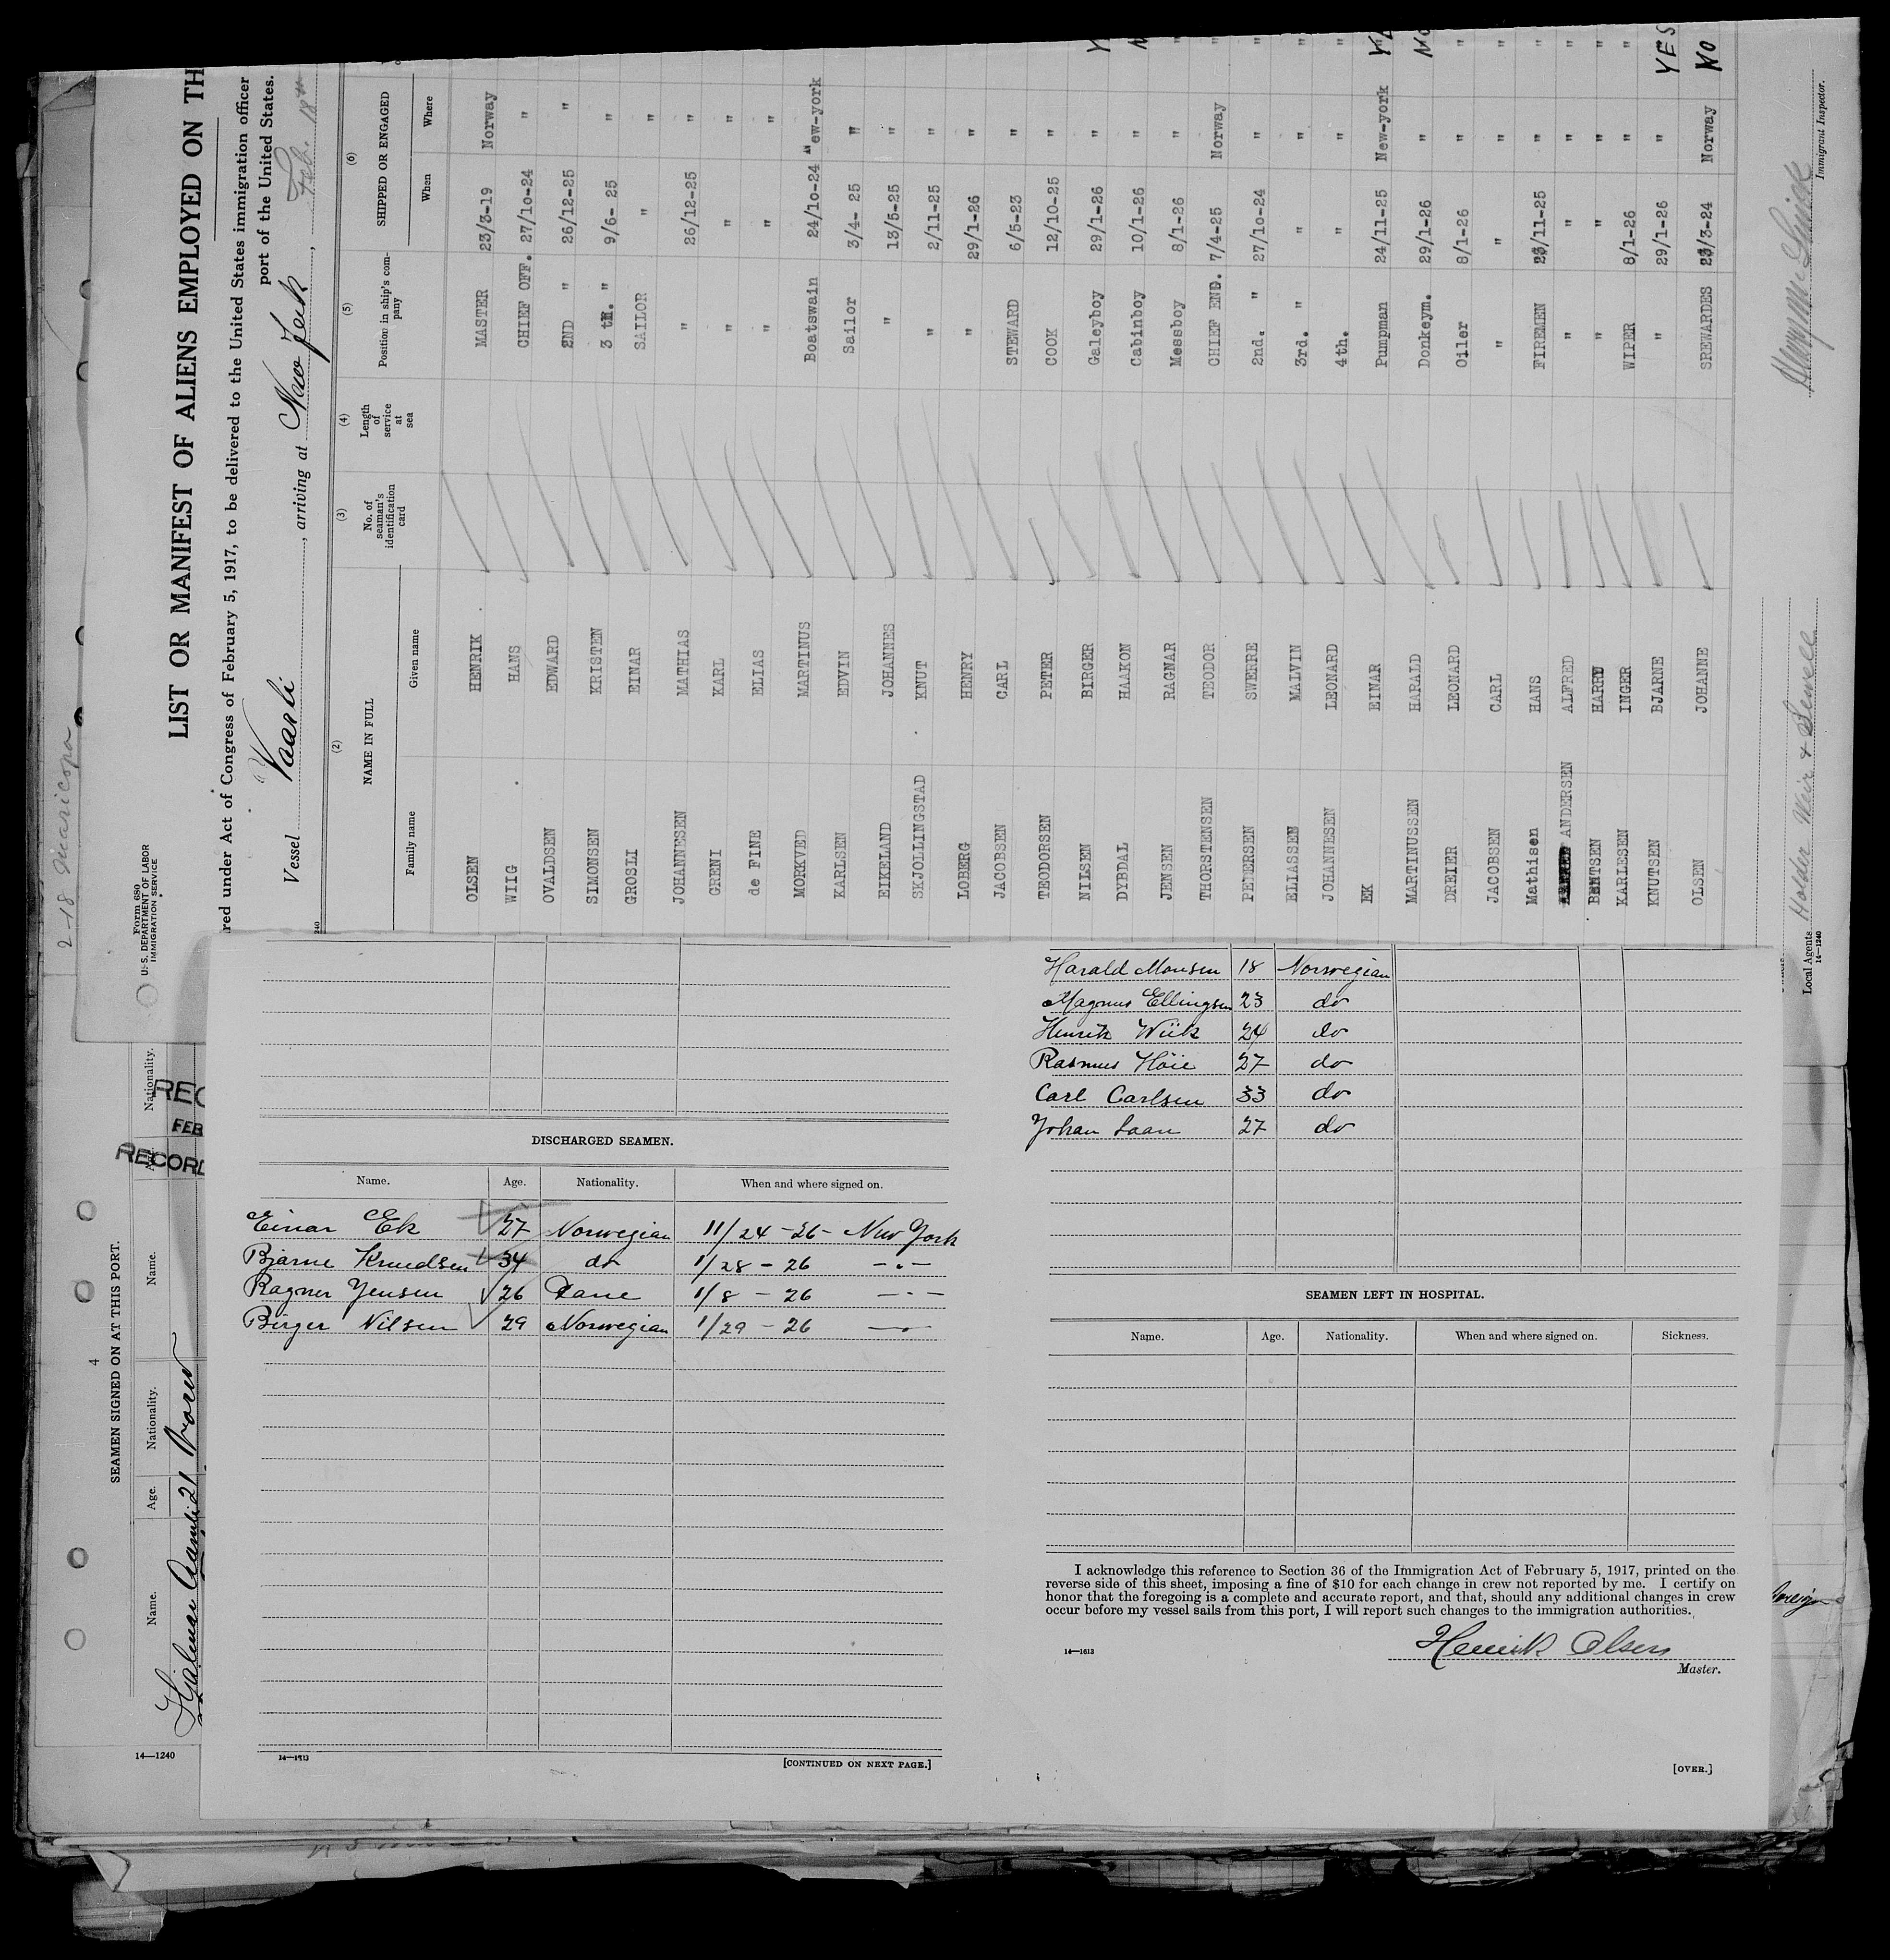 2-18 Maricopa
Form 680
U. S. DEPARTMENT OF LABOR
IMMIGRATION SERVICE
LIST OR MANIFEST OF ALIENS EMPLOYED ON TH
red under Act of Congress of February 5, 1917, to be delivered to the United States immigration officer
port of the United States.
Vessel Vaarli, arriving at New York, Feb. 18
(2) (3) (4) (5) (6)
NAME IN FULL No. of seaman's identification card Length of service at sea Position in ship's company SHIPPED OR ENGAGED
Family name Given name When Where
OLSEN HENRIK MASTER 23/3-19 Norway
WIIG HANS CHIEF OFF. 27/10-24 "
OVALDSEN EDWARD 2ND " 26/12-25 "
SIMONSEN KRISTEN 3 th. " 9/6- 25 "
GROSLI EINAR SAILOR " "
JOHANNESEN MATHIAS " 26/12-25 "
GRENI KARL " " "
de FINE ELIAS " " "
MORKVED MARTINUS Boatswain 24/10-24 New-york
KARLSEN EDVIN Sailor 3/4- 25 "
EIKELAND JOHANNES " 13/5-25 "
SKJOLLINGSTAD KNUT " 2/11-25 "
LOBERG HENRY " 29/1-26 "
JACOBSEN CARL STEWARD 6/5-23 "
TEODORSEN PETER COOK 12/10-25 "
NILSEN BIRGER Galeyboy 29/1-26 "
DYBDAL HAAKON Cabinboy 10/1-26 " "
JENSEN RAGNAR Messboy 8/1-26 " "
THORSTENSEN TEODOR CHIEF END. 7/4-25 Norway "
PETERSEN SWERRE 2nd. " 27/10-24 " "
ELIASSEN MALVIN 3rd. " " " "
JOHANNESEN LEONARD 4th. " " "
EK EINAR Pumpman 24/11-25 New-york "
MARTINUSSEN HARALD Donkeym. 29/1-26 " No
DREIER LEONARD Oiler 8/1-26 " "
JACOBSEN CARL " " " "
Mathisen HANS FIREMEN 23/11-25 " "
ANDERSEN ALFRED " " " "
BENTSEN HARRU " " " "
KARLESEN INGER WIPER 8/1-26 " "
KNUTSEN BJARNE " 29/1-26 " YES
OLSEN JOHANNE SREWARDES 23/3-24 Norway NO
Immigrant Inspector.
Local Agents Holder Weir & Sewell
14—1240
4
SEAMEN SIGNED ON AT THIS PORT.
Name. Age. Nationality. Name. Age. Nationality.
Hjalmar Aamli 21
REC
FEB
RECORD
14—1240
DISCHARGED SEAMEN.
Name. Age. Nationality. When and where signed on.
Einar Ek 27 Norwegian 11/24 - 26 - New York
Bjarne Knudsen 34 do 1/28 - 26 — " —
Ragner Jensen 26 Dane 1/8 - 26 — " —
Birger Nilsen 29 Norwegian 1/29 - 26 — " —
[CONTINUED ON NEXT PAGE.]
Harald Monsen 18 Norwegian
Magnus Ellingsen 23 do
Henrik Wiik 24 do
Rasmus Höie 27 do
Carl Carlsen 33 do
Johan Saan 27 do
SEAMEN LEFT IN HOSPITAL.
Name. Age. Nationality. When and where signed on. Sickness.
I acknowledge this reference to Section 36 of the Immigration Act of February 5, 1917, printed on the
reverse side of this sheet, imposing a fine of $10 for each change in crew not reported by me. I certify on
honor that the foregoing is a complete and accurate report, and that, should any additional changes in crew
occur before my vessel sails from this port, I will report such changes to the immigration authorities.
14—1613
Henrik Olsen
Master.
[OVER.]